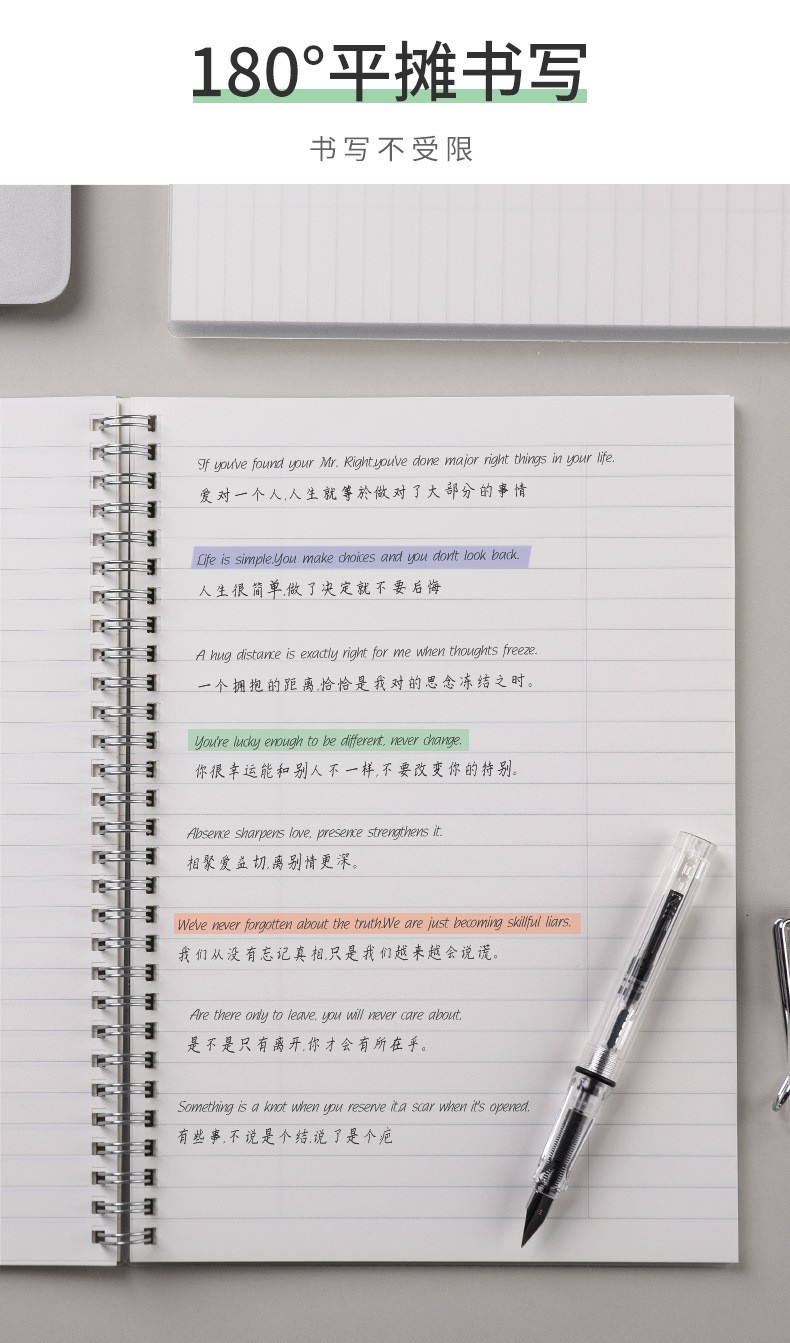 180°平摊书写
书写不受限
If you've found your Mr. Right,you've done major right things in your life.
爱对一个人,人生就等於做对了大部分的事情
Life is simple.You make choices and you don't look back.
人生很简单,做了决定就不要后悔
A hug distance is exactly right for me when thoughts freeze.
一个拥抱的距离,恰恰是我对的思念冻结之时。
You're lucky enough to be different, never change.
你很幸运能和别人不一样,不要改变你的特别。
Absence sharpens love, presence strengthens it.
相聚爱益切,离别情更深。
We've never forgotten about the truth.We are just becoming skillful liars.
我们从没有忘记真相,只是我们越来越会说谎。
Are there only to leave, you will never care about.
是不是只有离开,你才会有所在乎。
Something is a knot when you reserve it.a scar when it's opened.
有些事,不说是个结,说了是个疤